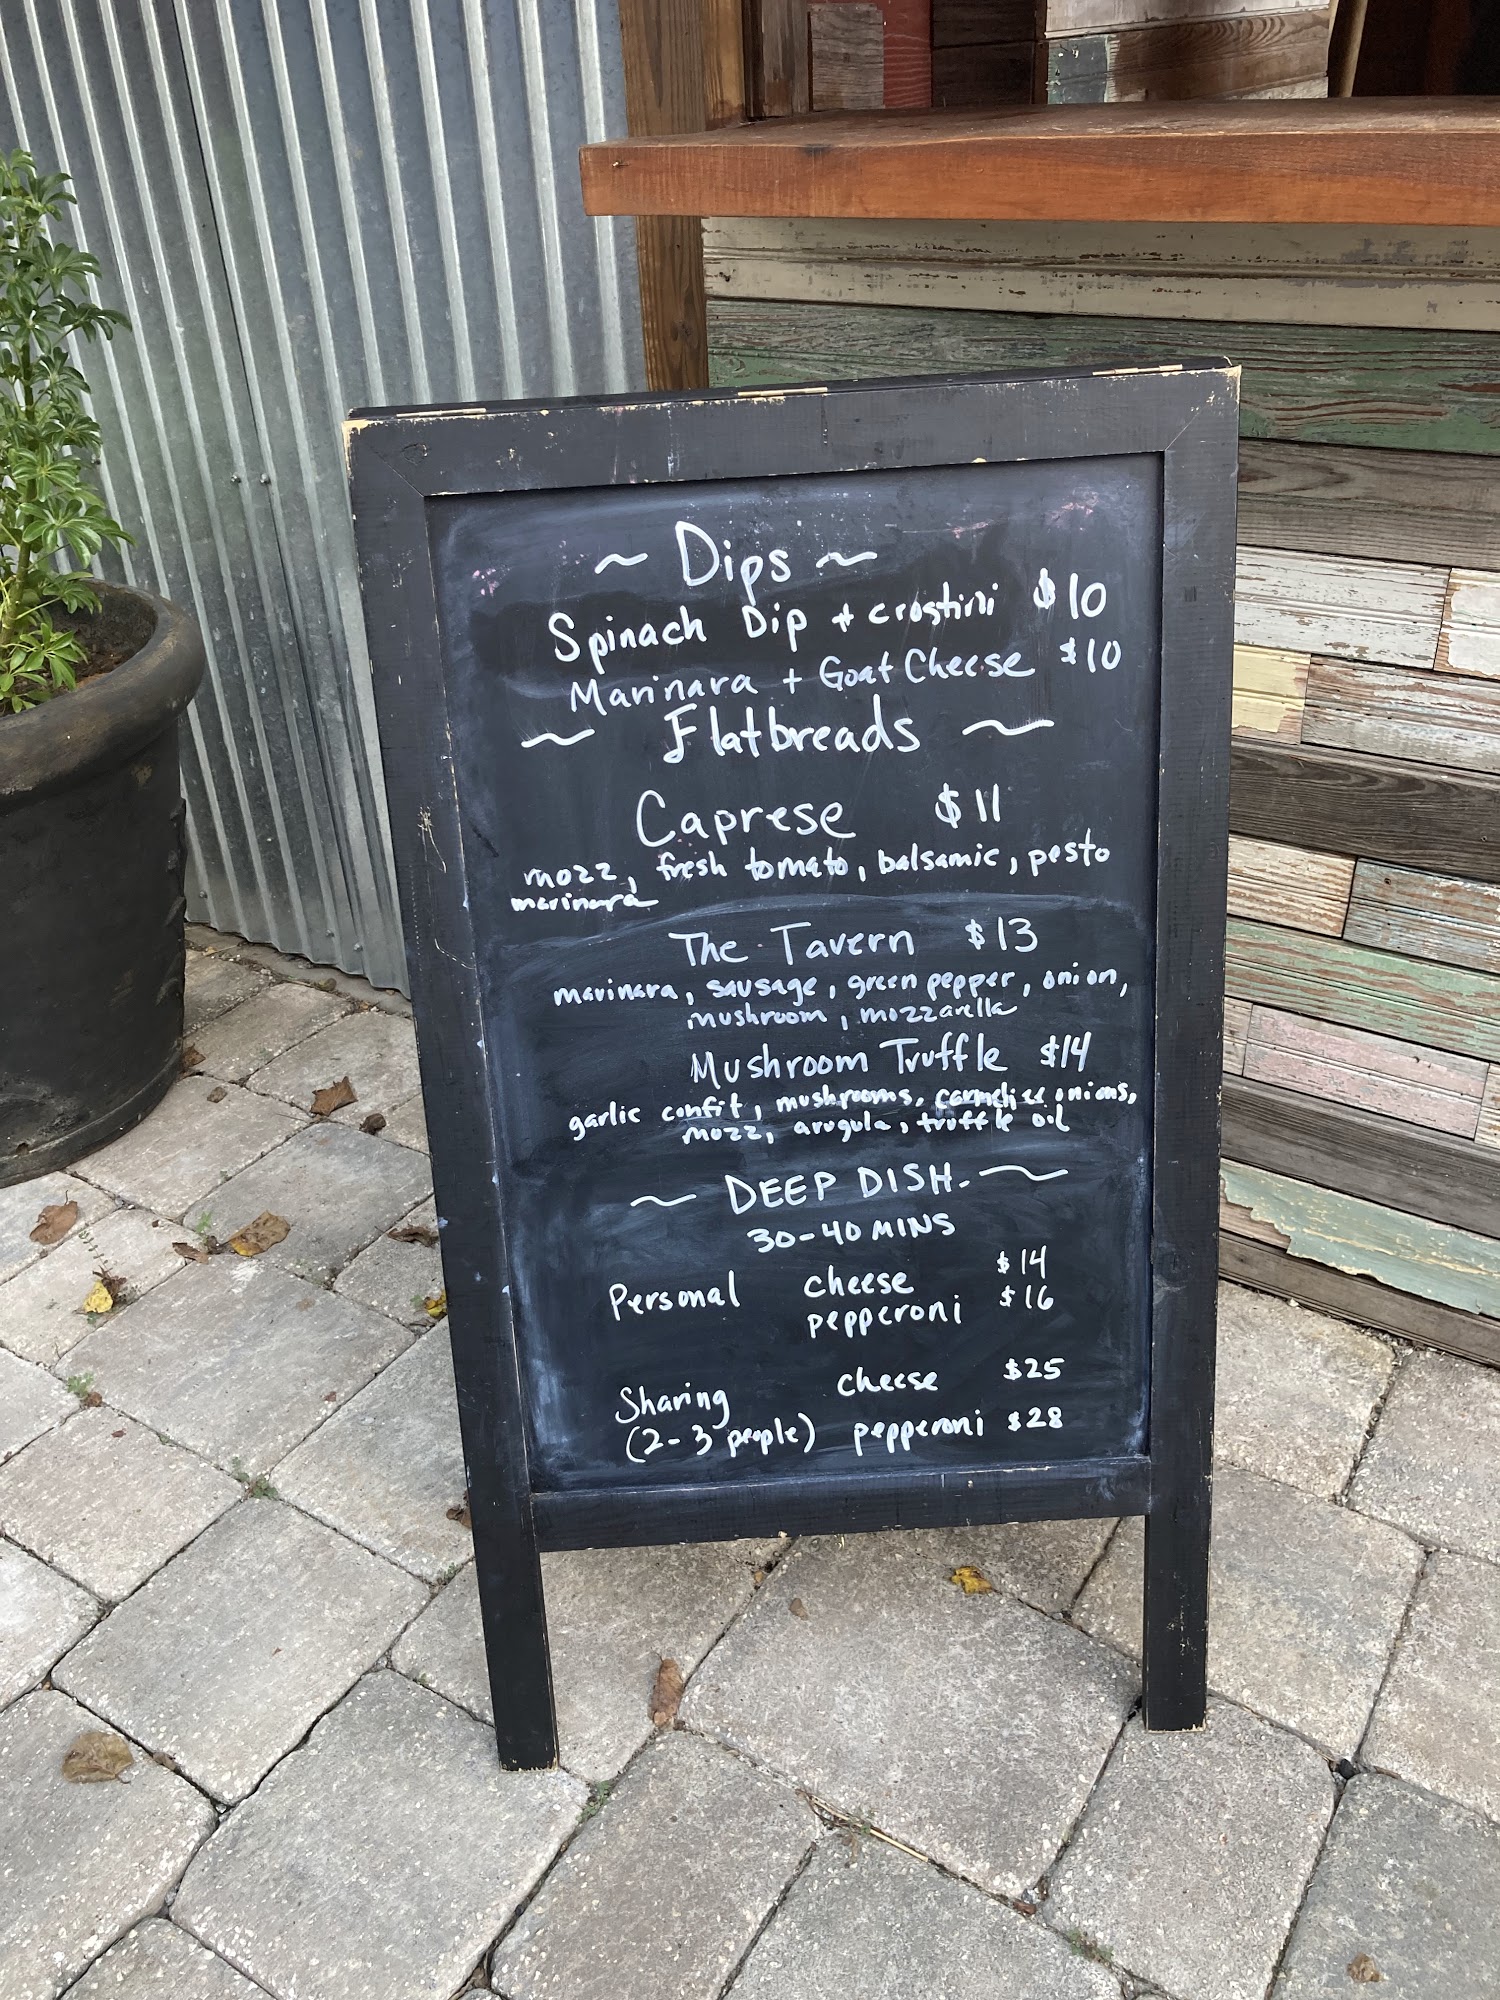 ~ Dips ~
Spinach Dip + crostini $10
Marinara + Goat Cheese $10
~ Flatbreads ~
Caprese $11
mozz, fresh tomato, balsamic, pesto
marinara
The Tavern $13
marinara, sausage, green pepper, onion,
mushroom, mozzarella
Mushroom Truffle $14
garlic confit, mushrooms, onions,
mozz, arugula, truffle oil
~ DEEP DISH. ~
30-40 MINS
Personal cheese $14
pepperoni $16
Sharing cheese $25
(2-3 people) pepperoni $28